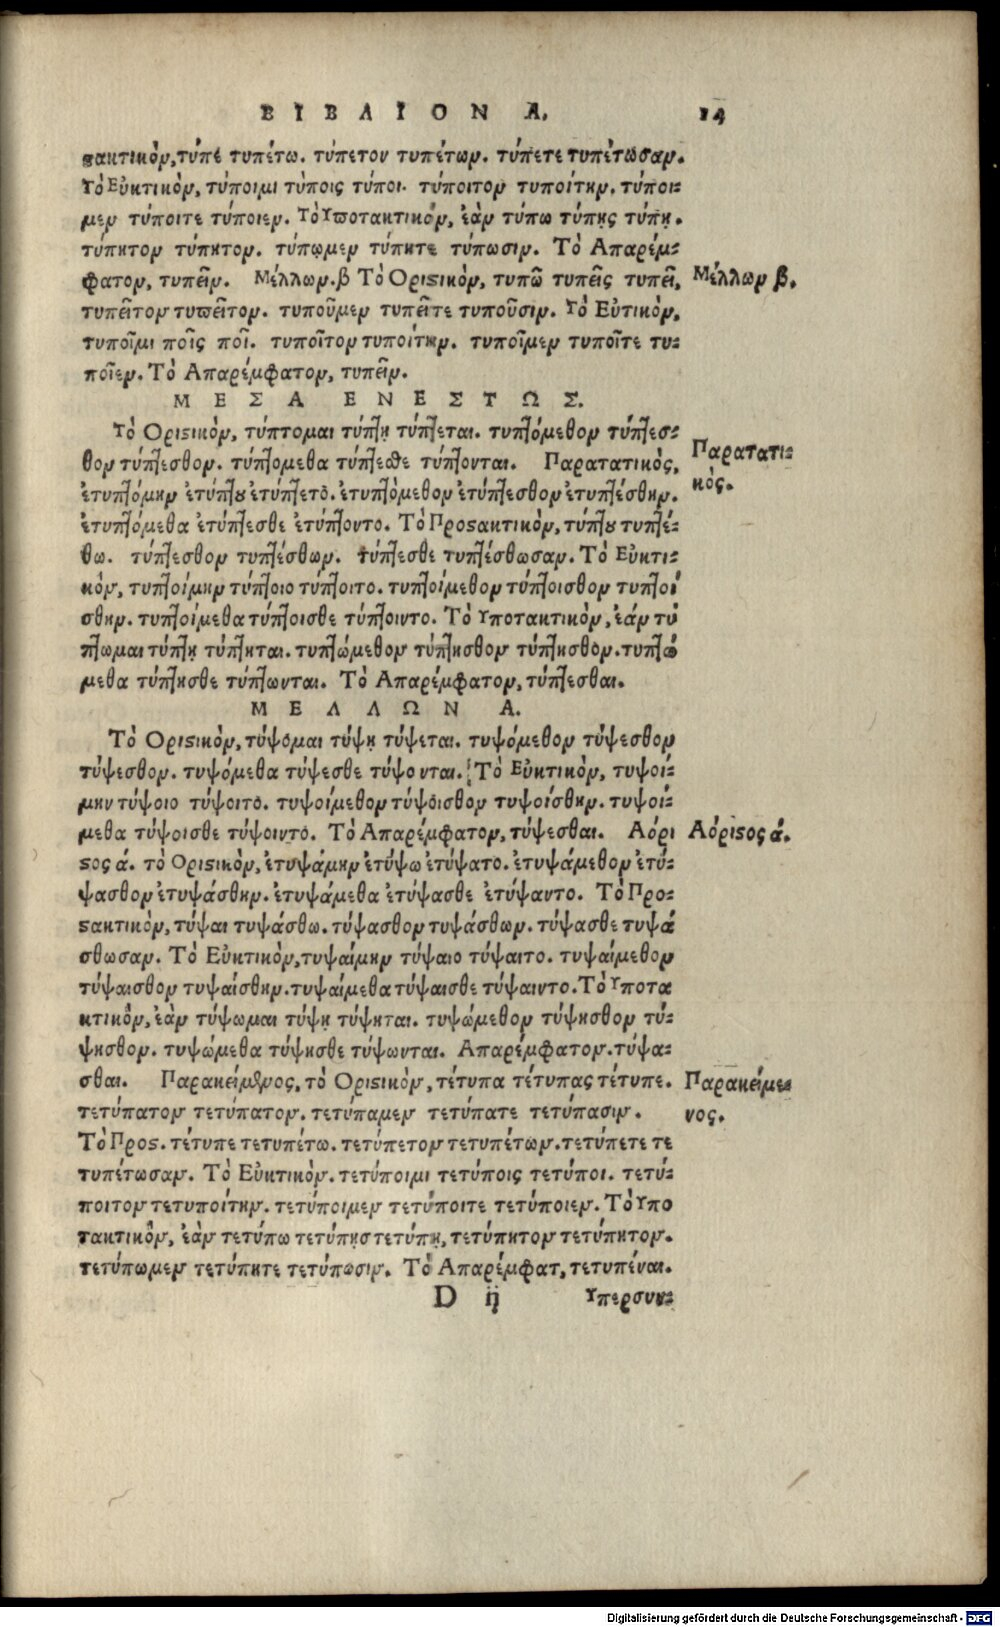 ΒΙΒΛΙΟΝ Α. 14
ςακτικὸν, τύπε τυπέτω. τύπετον τυπέτων. τύπετε τυπέτωσαν.
Τὸ Εὐκτικὸν, τύποιμι τύποις τύποι. τύποιτον τυποίτην. τύποι=
μεν τύποιτε τύποιεν. Τὸ Υποτακτικὸν, ἐὰν τύπω τύπῃς τύπῃ.
τύπητον τύπητον. τύπωμεν τύπητε τύπωσιν. Τὸ Απαρέμ=
φατον, τυπεῖν. Μέλλων.β Τὸ Οριςικὸν, τυπῶ τυπεῖς τυπεῖ,
Μέλλων β.
τυπεῖτον τυπεῖτον. τυποῦμεν τυπεῖτε τυποῦσιν. Τὸ Εὐτικὸν,
τυποῖμι ποῖς ποῖ. τυποῖτον τυποίτην. τυποῖμεν τυποῖτε τυ=
ποῖεν. Τὸ Απαρέμφατον, τυπεῖν.
ΜΕΣΑ ΕΝΕΣΤΩΣ.
Τὸ Οριςικὸν, τύπτομαι τύπτῃ τύπτεται. τυπτόμεθον τύπτεσ=
θον τύπτεσθον. τύπτομεθα τύπτεσθε τύπτονται. Παρατατικὸς,
Παρατατι=
κὸς.
ἐτυπτόμην ἐτύπτου ἐτύπτετο. ἐτυπτόμεθον ἐτύπτεσθον ἐτυπτέσθην.
ἐτυπτόμεθα ἐτύπτεσθε ἐτύπτοντο. Τὸ Προςακτικὸν, τύπτου τυπτέ=
θω. τύπτεσθον τυπτέσθων. τύπτεσθε τυπτέσθωσαν. Τὸ Εὐκτι=
κὸν, τυπτοίμην τύπτοιο τύπτοιτο. τυπτοίμεθον τύπτοισθον τυπτοί
σθην. τυπτοίμεθα τύπτοισθε τύπτοιντο. Τὸ Υποτακτικὸν, ἐάν τύ
πτωμαι τύπτῃ τύπτηται. τυπτώμεθον τύπτησθον τύπτησθον. τυπτώ
μεθα τύπτησθε τύπτωνται. Τὸ Απαρέμφατον, τύπτεσθαι.
ΜΕΛΛΩΝ Α.
Τὸ Οριςικὸν, τύψομαι τύψῃ τύψεται. τυψόμεθον τύψεσθον
τύψεσθον. τυψόμεθα τύψεσθε τύψονται. Τὸ Εὐκτικὸν, τυψοί=
μην τύψοιο τύψοιτο. τυψοίμεθον τύψοισθον τυψοίσθην. τυψοί=
μεθα τύψοισθε τύψοιντο. Τὸ Απαρέμφατον, τύψεσθαι. Αόρι
Αόριςος ά.
ςος ά. τὸ Οριςικὸν, ἐτυψάμην ἐτύψω ἐτύψατο. ἐτυψάμεθον ἐτύ=
ψασθον ἐτυψάσθην. ἐτυψάμεθα ἐτύψασθε ἐτύψαντο. Τὸ Προ=
ςακτικὸν, τύψαι τυψάσθω. τύψασθον τυψάσθων. τύψασθε τυψά
σθωσαν. Τὸ Εὐκτικὸν, τυψαίμην τύψαιο τύψαιτο. τυψαίμεθον
τύψαισθον τυψαίσθην. τυψαίμεθα τύψαισθε τύψαιντο. Τὸ Υποτα
κτικὸν, ἐὰν τύψωμαι τύψῃ τύψηται. τυψώμεθον τύψησθον τύ=
ψησθον. τυψώμεθα τύψησθε τύψωνται. Απαρέμφατον. τύψα=
σθαι. Παρακείμενος, τὸ Οριςικὸν, τέτυπα τέτυπας τέτυπε.
Παρακείμε=
νος.
τετύπατον τετύπατον. τετύπαμεν τετύπατε τετύπασιν.
Τὸ Προς. τέτυπε τετυπέτω. τετύπετον τετυπέτων. τετύπετε τε
τυπέτωσαν. Τὸ Εὐκτικὸν. τετύποιμι τετύποις τετύποι. τετύ=
ποιτον τετυποίτην. τετύποιμεν τετύποιτε τετύποιεν. Τὸ Υπο
τακτικὸν, ἐὰν τετύπω τετύπῃς τετύπῃ, τετύπητον τετύπητον.
τετύπωμεν τετύπητε τετύπωσιν. Τὸ Απαρέμφατ, τετυπέναι.
D ij Υπερσυν=
Digitalisierung gefördert durch die Deutsche Forschungsgemeinschaft - DFG